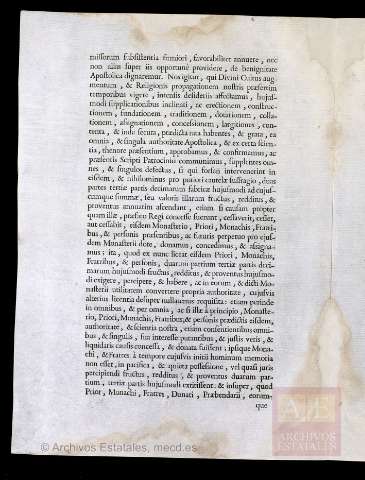 missorum subsistentia firmiori, favorabiliter annuere, nec
non alias super iis opportunè providere, de benignitate
Apostolica dignaremur. Nos igitur, qui Divini Cultus aug
mentum, & Religionis propagationem nostris præsertim
temporibus vigere, intensis desideriis affectamus, hujus-
modi supplicationibus inclinati, ac erectionem, construc-
tionem, fundationem, traditionem, dotationem, colla-
tionem, assignationem, concessionem, largitionem, con-
tenta, & inde secuta, prædicta rata habentes, & grata, ea
omnia, & singula authoritate Apostolica, & ex certa scien-
tia, thenore præsentium, approbamus, & confirmamus, ac
præsentis Scripti Patrocinio communimus, supplentes om-
nes, & singulos defectus, si qui forsan intervenerint in
eisdem, & nihilominus pro potiori cautelæ suffragio, duas
partes tertiæ partis decimarum fabricæ hujusmodi ad cujus-
cumque summæ, seu valoris illarum fructus, redditus, &
proventus annuatim ascendant, etiam si causam propter
quam illæ, præfato Regi concessæ fuerant, cessaverit, cesset,
aut cessabit, eisdem Monasterio, Priori, Monachis, Fratri-
bus, & personis præsentibus, ac futuris perpetuò pro ejus-
dem Monasterii dote, donamus, concedimus, & assigna-
mus: ita, quod ex nunc liceat eisdem Priori, Monachis,
Fratribus, & personis, duarum partium tertiæ partis deci-
marum hujusmodi fructus, redditus, & proventus hujusmo-
di exigere, percipere, & habere, ac in eorum, & dicti Mo-
nasterii utilitatem convertere propria authoritate, cujusvis
alterius licentia desuper nullatenus requisita: etiam perinde
in omnibus, & per omnia, ac si illæ à principio, Monaste-
rio, Priori, Monachis, Fratribus, & personis prædictis eisdem,
authoritate, & scientia nostra, etiam consentientibus omni-
bus, & singulis, sua interesse putantibus, & justis veris, &
liquidatis causis concessa, & donata fuissent; ipsique Mona-
chi, & Fratres à tempore cujusvis initii hominum memoria
non esset, in pacifica, & quieta possessione, vel quasi juris
percipiendi fructus, redditus, & proventus duarum par-
tium, tertiæ partis hujusmodi extitissent: & insuper, quod
Prior, Monachi, Fratres, Donati, Præbendarii, eorum-
que
© Archivos Estatales, mecd.es
AE
ARCHIVOS
ESTATALES